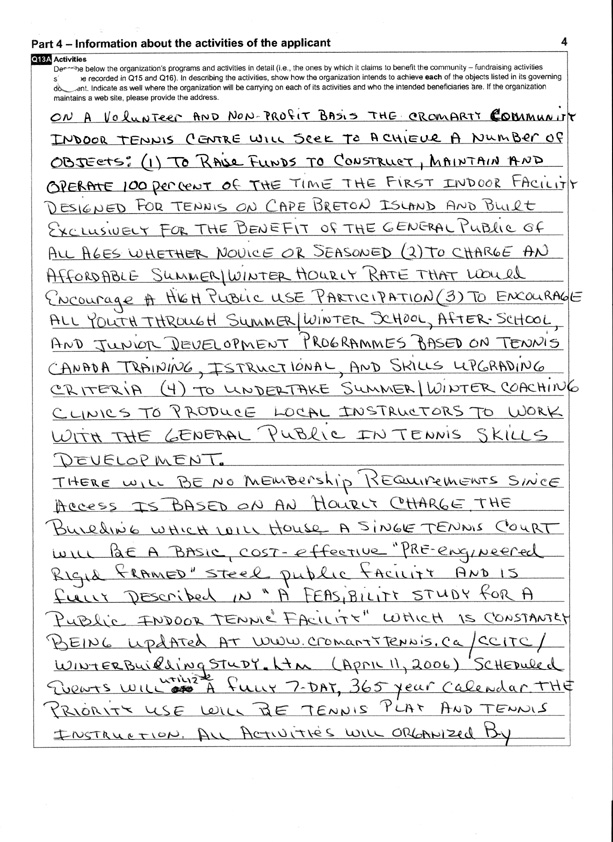 Part 4 – Information about the activities of the applicant 4
Q13A Activities
below the organization's programs and activities in detail (i.e., the ones by which it claims to benefit the community – fundraising activities
be recorded in Q15 and Q16). In describing the activities, show how the organization intends to achieve each of the objects listed in its governing
Indicate as well where the organization will be carrying on each of its activities and who the intended beneficiaries are. If the organization
maintains a web site, please provide the address.
ON A Volunteer AND NON-PROFIT BASIS THE CROMARTY COMMUNITY
INDOOR TENNIS CENTRE WILL SEEK TO ACHIEVE A NUMBER OF
OBJECTS: (1) TO RAISE FUNDS TO CONSTRUCT, MAINTAIN AND
OPERATE 100 PERCENT OF THE TIME THE FIRST INDOOR FACILITY
DESIGNED FOR TENNIS ON CAPE BRETON ISLAND AND BUILT
EXCLUSIVELY FOR THE BENEFIT OF THE GENERAL PUBLIC OF
ALL AGES WHETHER NOVICE OR SEASONED (2) TO CHARGE AN
AFFORDABLE SUMMER/WINTER HOURLY RATE THAT WOULD
ENCOURAGE A HIGH PUBLIC USE PARTICIPATION (3) TO ENCOURAGE
ALL YOUTH THROUGH SUMMER/WINTER SCHOOL, AFTER-SCHOOL,
AND JUNIOR DEVELOPMENT PROGRAMMES BASED ON TENNIS
CANADA TRAINING, ISTRUCTIONAL, AND SKILLS UPGRADING
CRITERIA (4) TO UNDERTAKE SUMMER/WINTER COACHING
CLINICS TO PRODUCE LOCAL INSTRUCTORS TO WORK
WITH THE GENERAL PUBLIC IN TENNIS SKILLS
DEVELOPMENT.
THERE WILL BE NO MEMBERSHIP REQUIREMENTS SINCE
ACCESS IS BASED ON AN HOURLY CHARGE. THE
BUILDING WHICH WILL HOUSE A SINGLE TENNIS COURT
WILL BE A BASIC, COST-EFFECTIVE "PRE-ENGINEERED
RIGID FRAMED" STEEL PUBLIC FACILITY AND IS
FULLY DESCRIBED IN "A FEASIBILITY STUDY FOR A
PUBLIC INDOOR TENNIS FACILITY" WHICH IS CONSTANTLY
BEING UPDATED AT WWW.CROMARTYTENNIS.CA/CCITC/
WINTERBUILDINGSTUDY.HTM (APRIL 11, 2006) SCHEDULED
EVENTS WILL UTILIZE A FULLY 7-DAY, 365 YEAR CALENDAR. THE
PRIORITY USE WILL BE TENNIS PLAY AND TENNIS
INSTRUCTION. ALL ACTIVITIES WILL ORGANIZED BY